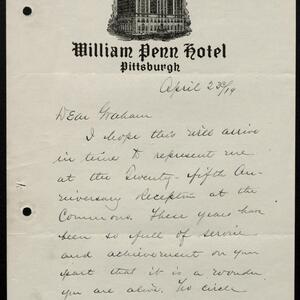 William Penn Hotel
Pittsburgh
April 23d/19
Dear Graham
I hope this will arrive
in time to represent me
at the Twenty-fifth An-
niversary Reception at the
Commons. These years have
been so full of service
and achievement on your
part that it is a wonder
you are alive. No circle